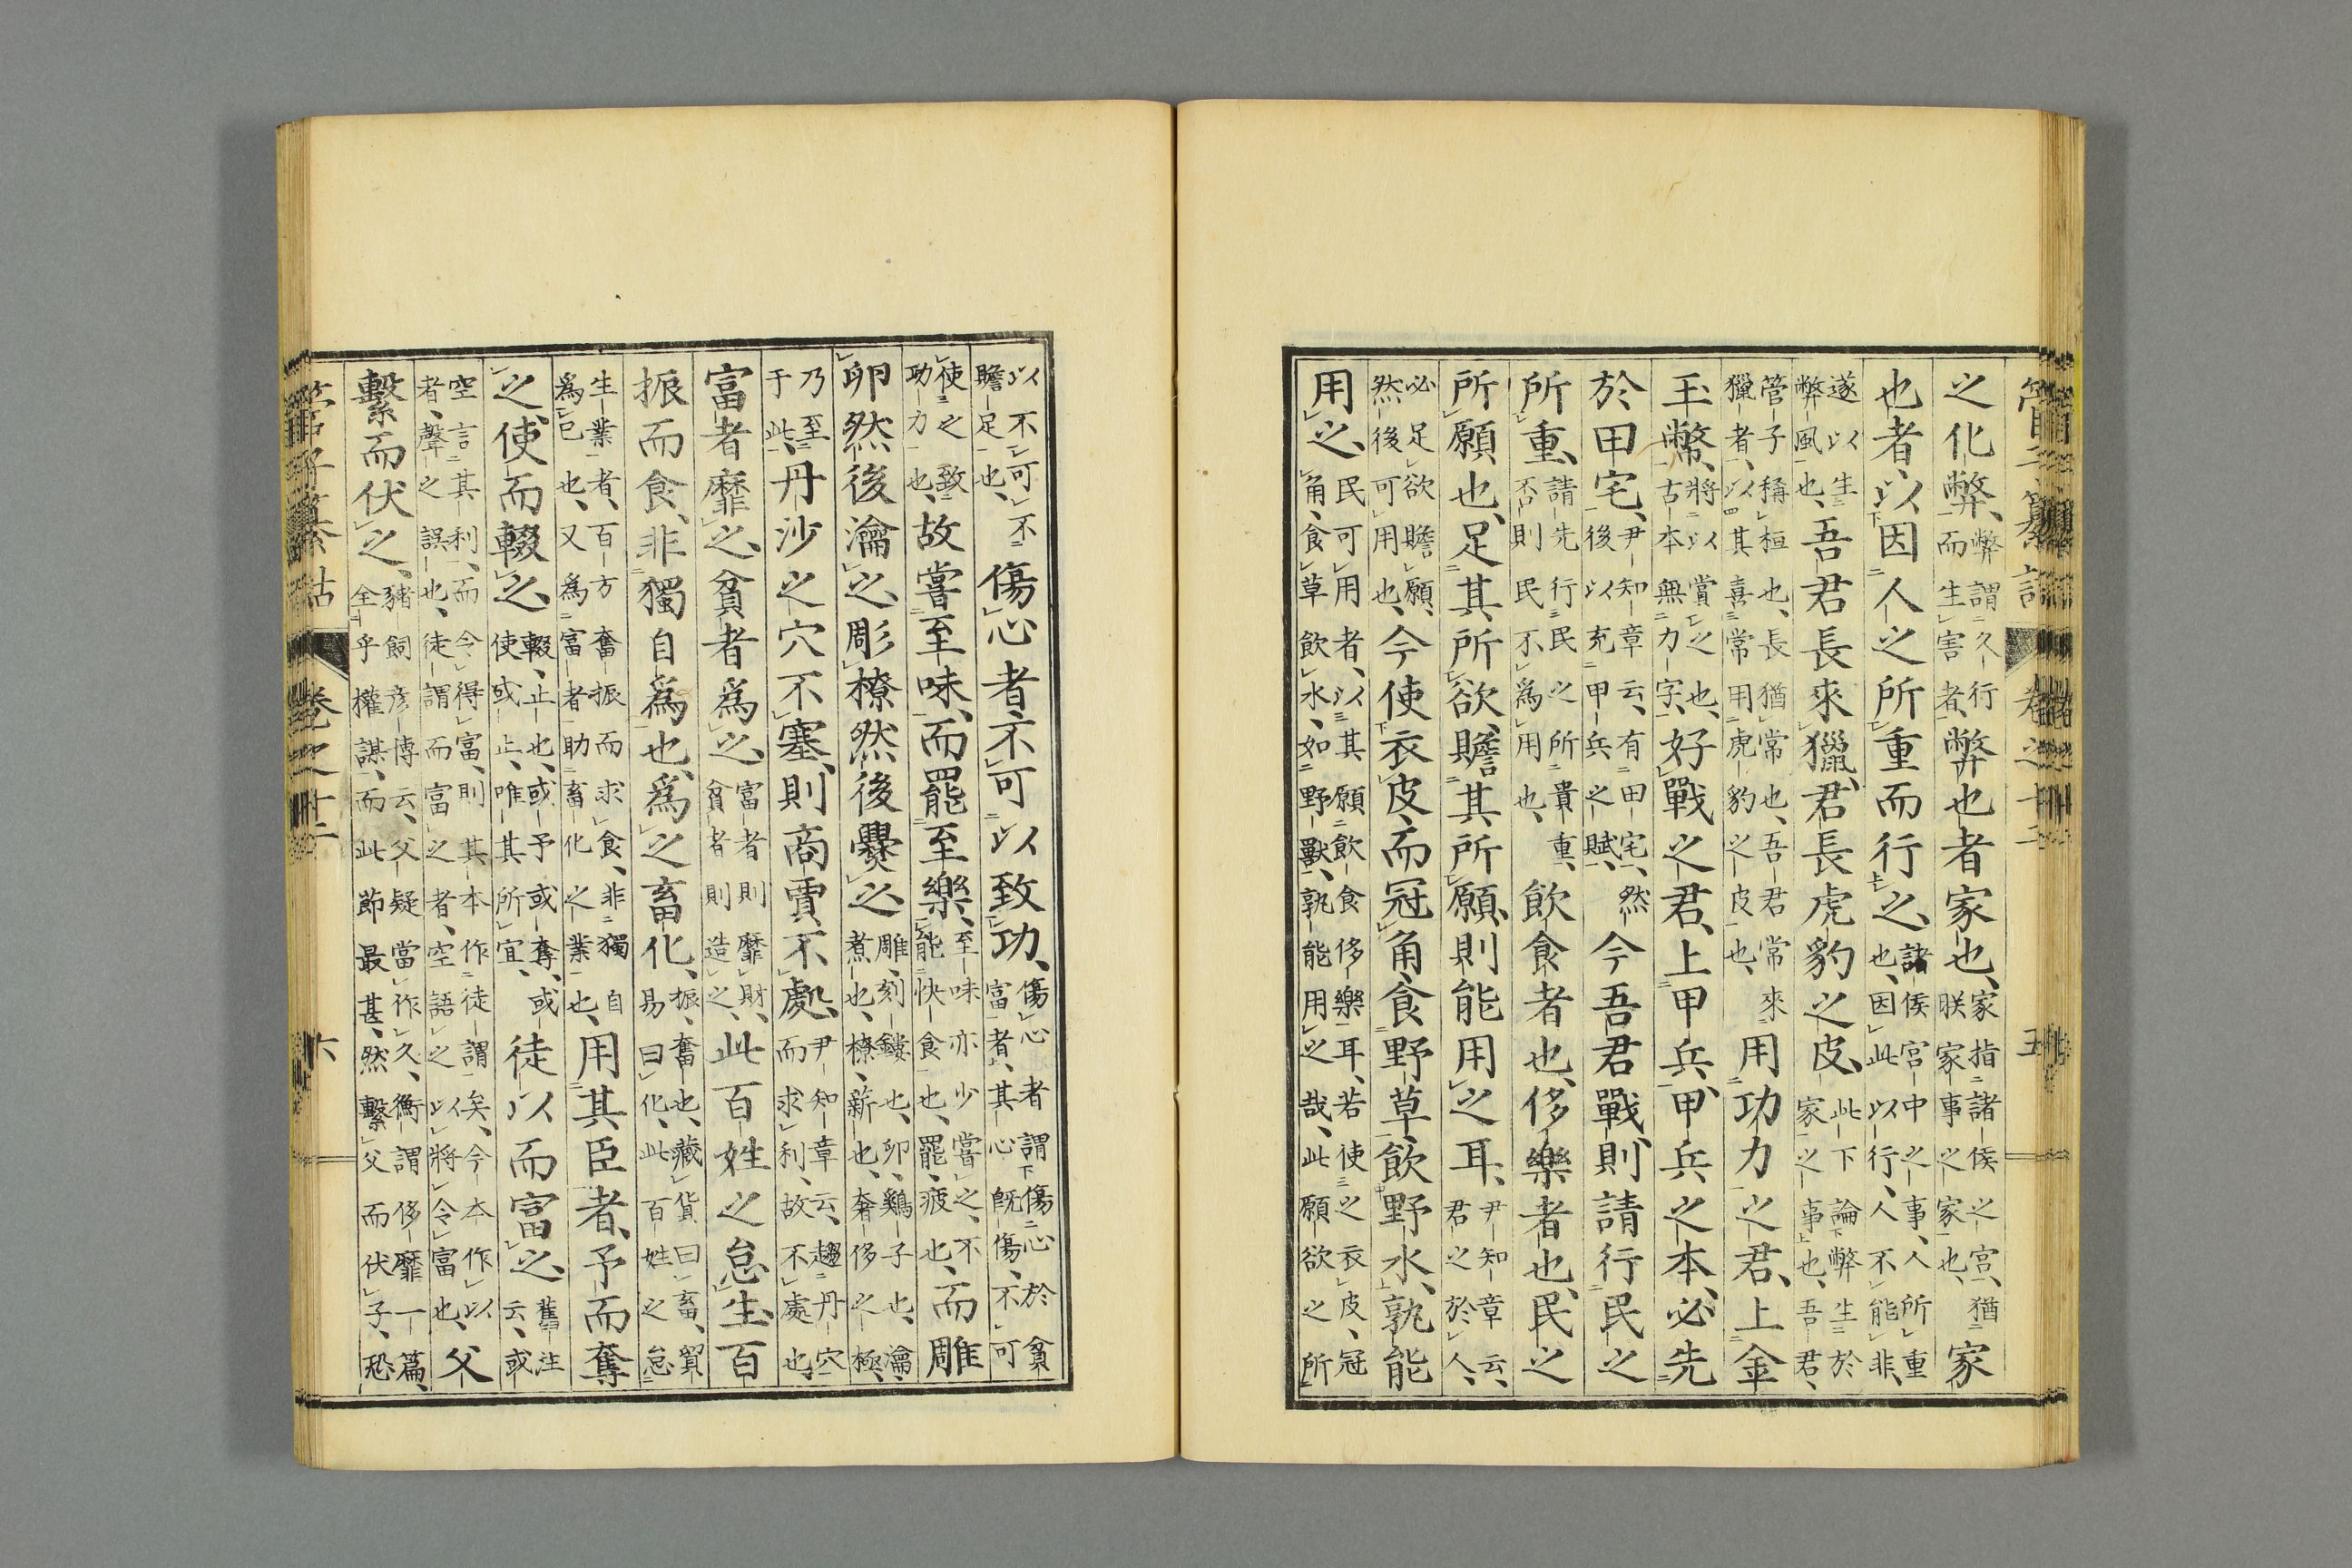 管子纂詁 卷之十二 五
之化弊、弊謂久行
而生害者、弊也者家也、家指諸侯之宮、猶
朕家事之家也、家
也者、以因人之所重而行之、諸侯宮中之事、人所重
也、因此以行、人不能非、
遂以生
弊風也、吾君長來獵、君長虎豹之皮、此下論弊生於
家之事也、吾君、
管子稱桓也、長猶常也、吾君常來
獵者、以其喜常用虎豹之皮也、用功力之君、上金
玉幣、將以賞之也、
古本無力字、好戰之君、上甲兵、甲兵之本、必先
於田宅、尹知章云、有田宅、然
後以充甲兵之賦、今吾君戰、則請行民之
所重、請先行民之所貴重、
否則民不為用也、飲食者也、侈樂者也、民之
所願也、足其所欲、贍其所願、則能用之耳、尹知章云、
君之於人、
必足欲贍願、
然後可用也、今使衣皮、而冠角、食野草、飲野水、孰能
用之、民可用者、以其願飲食侈樂耳、若使之衣皮、冠
角、食草飲水、如野獸、孰能用之哉、此願欲之所
以不可不
贍足也、傷心者、不可以致功、傷心者謂傷心於貧
富者、其心既傷、不可
使之致
功力也、故嘗至味、而罷至樂、至味亦少嘗之、不
能快食也、罷、疲也、而雕
卵然後瀹之、彫橑然後爨之、雕、刻鏤也、卵、鷄子也、瀹、
煮也、橑、薪也、奢侈之極、
乃至
于此、丹沙之穴不塞、則商賈、不處、尹知章云、趨丹穴
而求利、故不處也、
富者靡之、貧者為之、富者則靡財、
貧者則造之、此百姓之怠生、百
振而食、非獨自為也、為之畜化、振、奮也、藏貨曰畜、貿
易曰化、此百姓之怠
生業者、百方奮振而求食、非獨自
為已也、又為富者助畜化之業也、用其臣者、予而奪
之、使而輟之、輟、止也、或予或奪、或
使或止、唯其所宜、徒以而富之、舊注
云、或
空言其利、而令得富、則其本作徒謂矣、今本作以
者、聲之誤也、徒謂而富之者、空語之以將令富也、父
繫而伏之、豬飼彥博云、父疑當作久、衡謂侈靡一篇、
全乎權謀、而此節最甚、然繫父而伏子、恐
管子纂詁 卷之十二 六